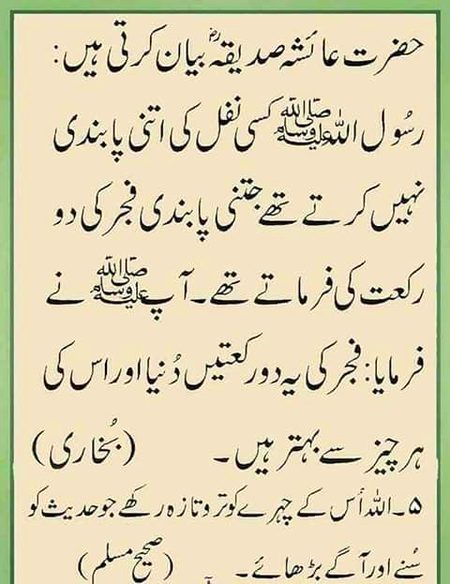 حضرت عائشہ صدیقہؓ بیان کرتی ہیں:
رسُول اللہ ﷺ کسی نفل کی اتنی پابندی
نہیں کرتے تھے جتنی پابندی فجر کی دو
رکعت کی فرماتے تھے۔ آپ ﷺ نے
فرمایا: فجر کی یہ دو رکعتیں دُنیا اور اس کی
ہر چیز سے بہتر ہیں۔ (بُخاری)
۵۔ اللہ اُس کے چہرے کو تر و تازہ رکھے جو حدیث کو
سُنے اور آگے بڑھائے۔ (صحیح مسلم)